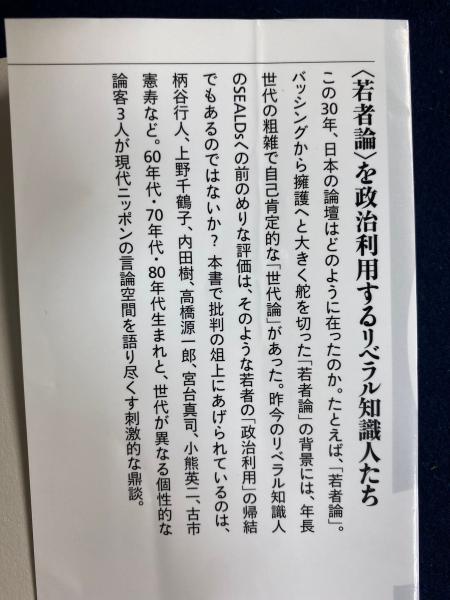 〈若者論〉を政治利用するリベラル知識人たち
この30年、日本の論壇はどのように在ったのか。たとえば、「若者論」。
バッシングから擁護へと大きく舵を切った「若者論」の背景には、年長
世代の粗雑で自己肯定的な「世代論」があった。昨今のリベラル知識人
のSEALDsへの前のめりな評価は、そのような若者の「政治利用」の帰結
でもあるのではないか? 本書で批判の俎上にあげられているのは、
柄谷行人、上野千鶴子、内田樹、高橋源一郎、宮台真司、小熊英二、古市
憲寿など。60年代・70年代・80年代生まれと、世代が異なる個性的な
論客3人が現代ニッポンの言論空間を語り尽くす刺激的な鼎談。